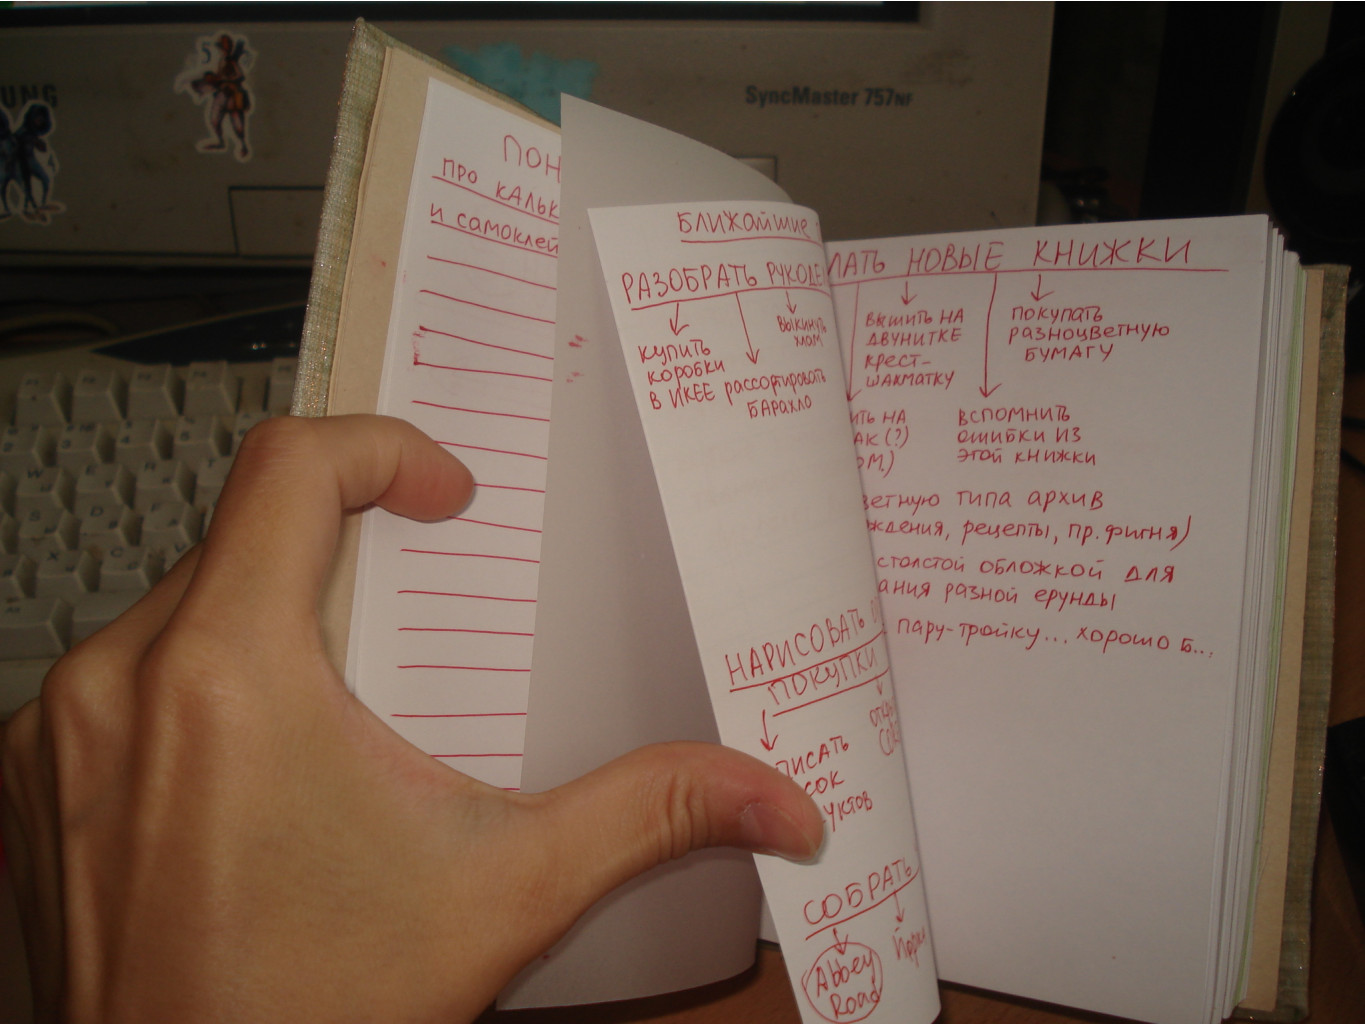 SyncMaster 757NF
UNG
ПОН
ПРО КАЛЬК
И САМОКЛЕЙ
БЛИЖАЙШИЕ
РАЗОБРАТЬ РУКОДЕ
КУПИТЬ
КОРОБКИ
В ИКЕЕ
РАССОРТИРОВАТЬ
БАРАХЛО
ВЫКИНУТЬ
ХЛАМ
НАРИСОВАТЬ
ПОКУПКИ
ПИСАТЬ
СОК
УКТОВ
СОБРАТЬ
Abbey
Road
ЛАТЬ НОВЫЕ КНИЖКИ
ВЫШИТЬ НА
ДВУНИТКЕ
КРЕСТ-
ШАКМАТКУ
ПОКУПАТЬ
РАЗНОЦВЕТНУЮ
БУМАГУ
ИТЬ НА
АК (?)
ОМ.)
ВСПОМНИТЬ
ОШИБКИ ИЗ
ЭТОЙ КНИЖКИ
ВЕТНУЮ ТИПА АРХИВ
ЖДЕНИЯ, РЕЦЕПТЫ, ПР. ФИГНЯ)
С ТОЛСТОЙ ОБЛОЖКОЙ ДЛЯ
АНИЯ РАЗНОЙ ЕРУНДЫ
ПАРУ-ТРОЙКУ... ХОРОШО Б...